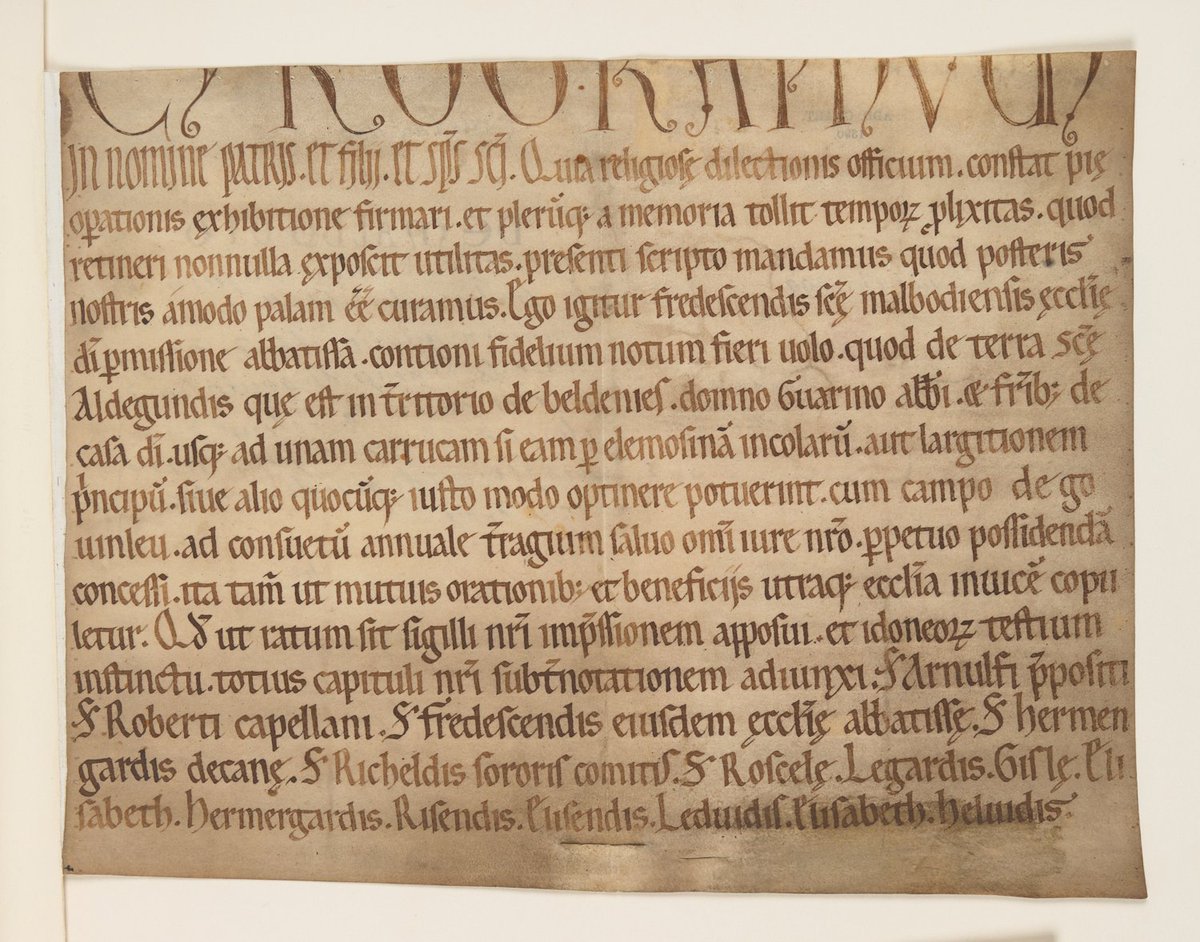 CYROGRAPHVM
IN NOMINE PATRIS . ET FILII . ET SP̄S SC̄I . Quia religiosę dilectionis officium . constat pię
oꝑationis exhibitione firmari . et plerūq; a memoria tollit temporꝝ ꝓlixitas . quod
retineri nonnulla exposcit utilitas . presenti scripto mandamus quod posteris
nostris ámodo palam ēē curamus . Ego igitur fredescendis scę̄ malbodiensis ęcclīę
dī ꝑmissione abbatissa . contioni fidelium notum fieri uolo . quod de terra scę̄
Aldegundis quę est in t̄rritorio de beldenies . domno Guarino abb̄i . & fr̄ib; de
casa dī . usq; ad unam carrucam si eam ꝑ elemosinā incolarū . aut largitionem
pⁱncipū . siue alio quocūq; iusto modo optinere potuerint . cum campo de go
uinleu . ad consuetū annuale t̄ragium saluo om̄i iure nr̄o . ꝑpetuo possidendā
concessi . ita tam̄ ut mutuis orationib; et beneficijs utraq; ecclīa inuicē copu
letur . Qd̄ ut ratum sit sigilli nr̄i imp̄ssionem apposui . et idoneorꝝ testium
instinctu . totius capituli nr̄i subt̄notationem adiunxi . S̄ Arnulfi p̄positi
S̄ Roberti capellani . S̄ fredescendis eiusdem ęcclīę abbatissę . S̄ hermen
gardis decanę . S̄ Richeldis sororis comitis . S̄ Roscelę . Legardis . Gislę . Eli
sabeth . hermergardis . Risendis . Elisendis . Leduidis . Elisabeth . heluidis .